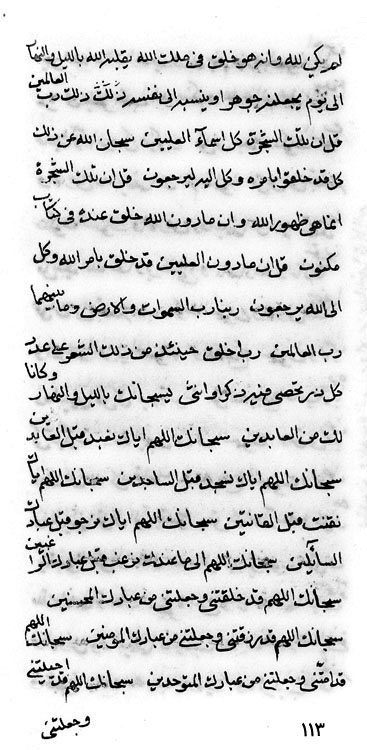 لم يكن لله وانه هو خلق في ملك الله يقلبه الله بالليل والنهار
الى يوم يجعلنه جوهرا وينسبه الى نفسه ذلك ذلك رب العالمين
قل ان تلك الشجرة كل اسماء العليين سبحان الله عن ذلك
كل قد خلقوا بامره وكل اليه ليرجعون قل ان تلك الشجرة
انما هو ظهور الله وان ما دون الله خلق عنده في كتاب
مكنون قل ان ما دون العليين قد خلق بامر الله وكل
الى الله يرجعون ربنا رب السموات والارض وما بينهما
رب العالمين رب اخلق حينئذ من ذلك الشعر على عدد
كل من ذكرا وانثى يسبحانك بالليل والنهار وكانا
لك من العابدين سبحانك اللهم اياك نعبد قبل العابدين
سبحانك اللهم اياك نسجد قبل الساجدين سبحانك اللهم اياك
نقنت قبل القانتين سبحانك اللهم اياك نرجو قبل عبادك
السائلين سبحانك اللهم الى ما عندك نرغب قبل عبادك الراغبين
سبحانك اللهم قد خلقتني وجعلتني من عبادك المحسنين
سبحانك اللهم قد رزقتني وجعلتني من عبادك المؤمنين سبحانك اللهم
قد امتني وجعلتني من عبادك الموحدين سبحانك اللهم قد احييتني
وجعلتني
١١٣